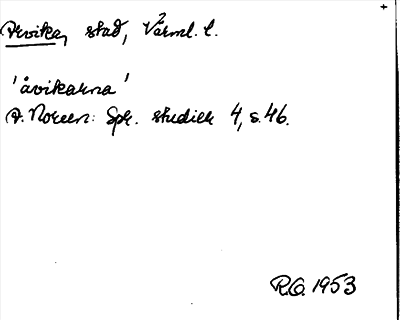 Arvika, stad, Värml. l.
'åvikarna'
A. Noreen: Spr. studier 4, s. 46.
R.O. 1953